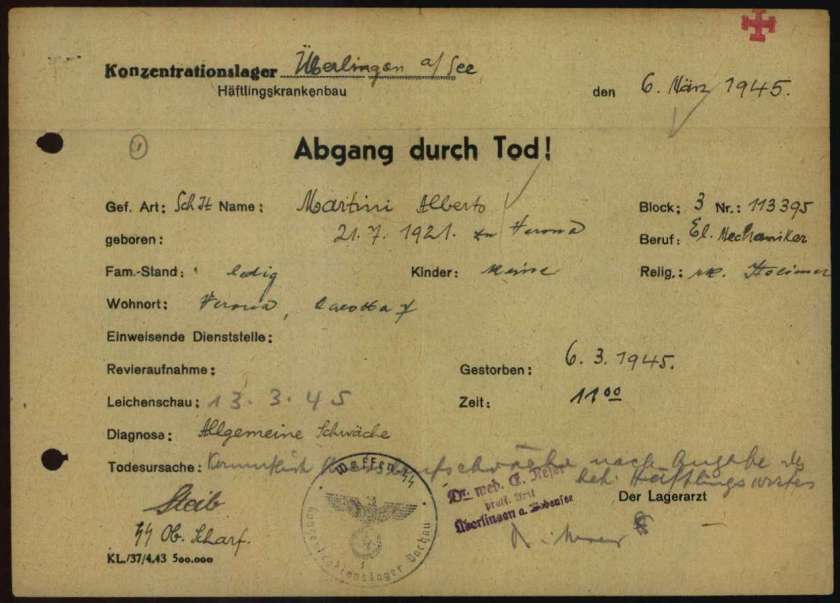 Konzentrationslager Überlingen a/See
Häftlingskrankenbau den 6. März 1945.
Abgang durch Tod!
Gef. Art: Sch It Name: Martini Alberto Block: 3 Nr.: 113395
geboren: 21. 7. 1921. zu Verona Beruf: El. Mechaniker
Fam.-Stand: ledig Kinder: keine Relig.: Italiener
Wohnort: Verona,
Einweisende Dienststelle:
Revieraufnahme: Gestorben: 6. 3. 1945.
Leichenschau: 13. 3. 45 Zeit: 11 00
Diagnose: Allgemeine Schwäche
Todesursache: nach Angabe des
beh. Häftlingsarztes
Waffen-SS
Konzentrationslager Dachau
Dr. med. prakt. Arzt
Überlingen a. Bodensee
Der Lagerarzt
Steib
SS Ob. Scharf.
KL./37/4.43 500.000